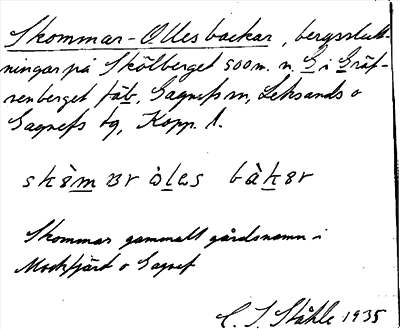 Skommar-Olles backar, bergsslutt-
ningar på Skölberget 500 m. n. G i Gräf-
renberget fäb, Gagnefs sn, Leksands o
Gagnefs tg, Kopp. l.
skòmar òles bàkar
Skommar gammalt gårdsnamn i
Mockfjärd o Gagnef
C. I. Ståhle 1935